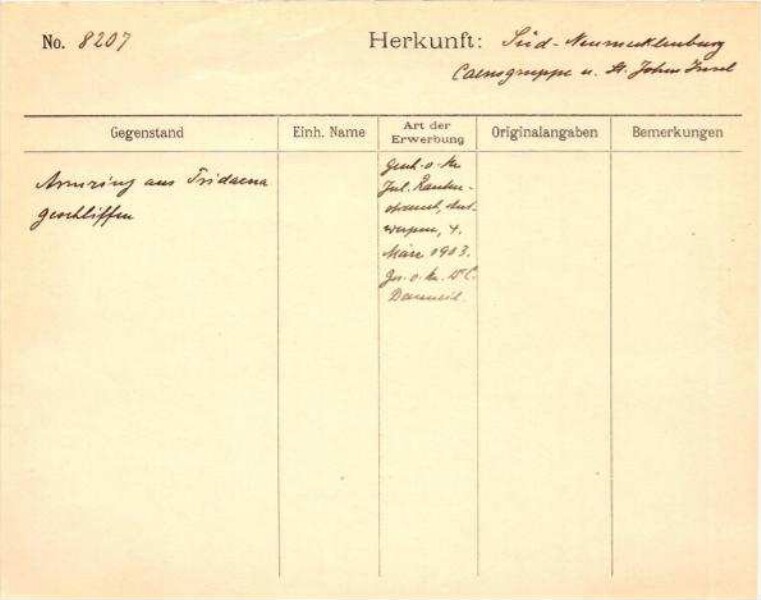 No. 8207
Herkunft: Süd-Neumecklenburg
Caensgruppe u. St. Johns Insel
Gegenstand
Einh. Name
Art der Erwerbung
Originalangaben
Bemerkungen
Armring aus Tridacna
geschliffen
Gesch. v. Kr.
Jul. Rauten-
strauch, Ant-
werpen, 4.
März 1903.
Ges. v. Kr. Dr C.